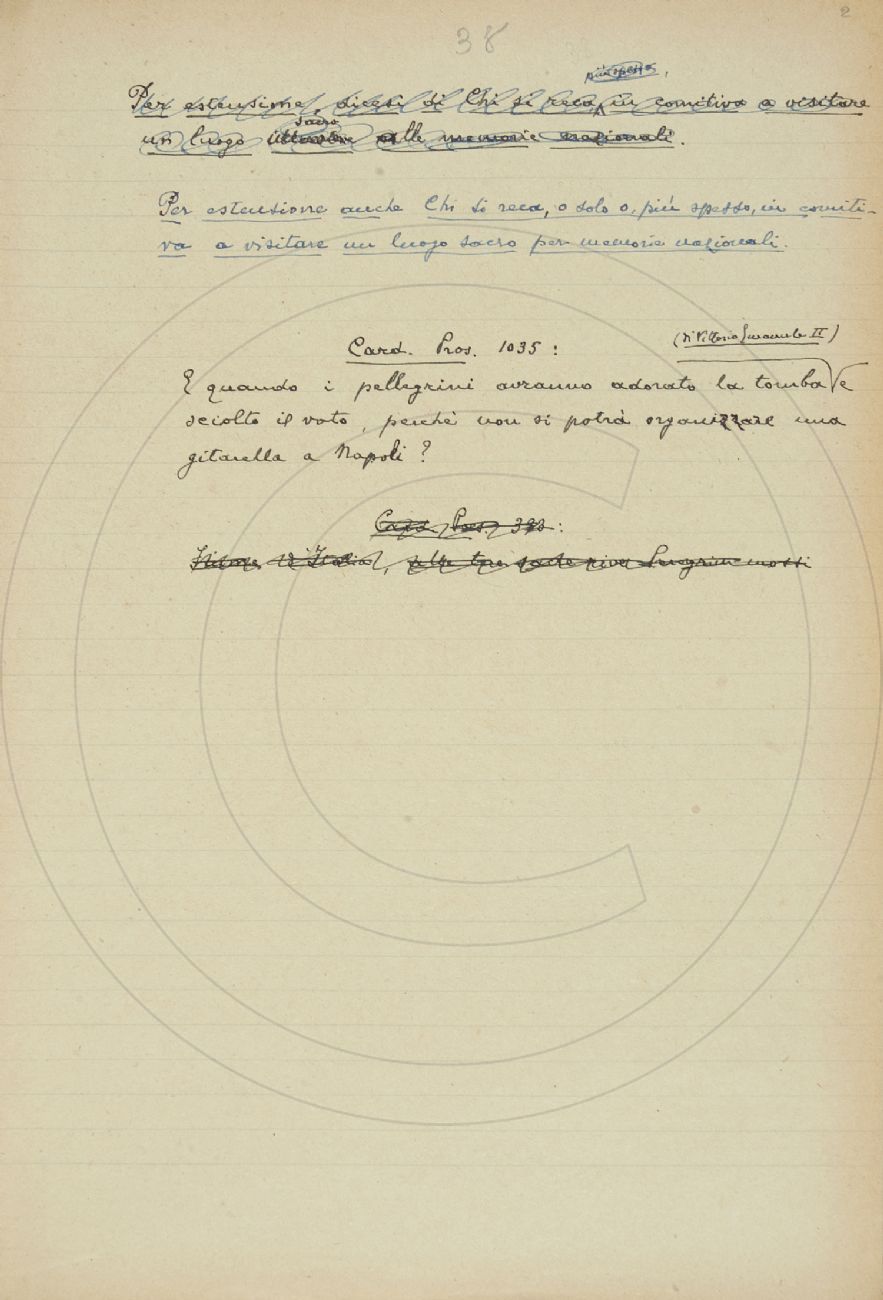 2
38
più spesso,
Per estensione, dicesi di Chi si reca in comitiva a visitare
sacro
un luogo alle memorie nazionali.
Per estensione anche Chi si reca, o solo o, più spesso, in comiti-
va a visitare un luogo sacro per memorie nazionali.
(di Vittorio Emanuele II)
Card. Pros. 1035:
E quando i pellegrini avranno adorato la tomba e
sciolto il voto, perchè non si potrà organizzare una
gitarella a Napoli?
Card. Pros. :
d'Italia, alle tue sacre rive Peregrin mossi